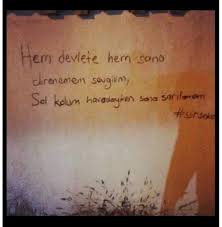 Hem devlete hem sana
direnemem sevgilim,
Sol kolum havadayken sana sarılamam